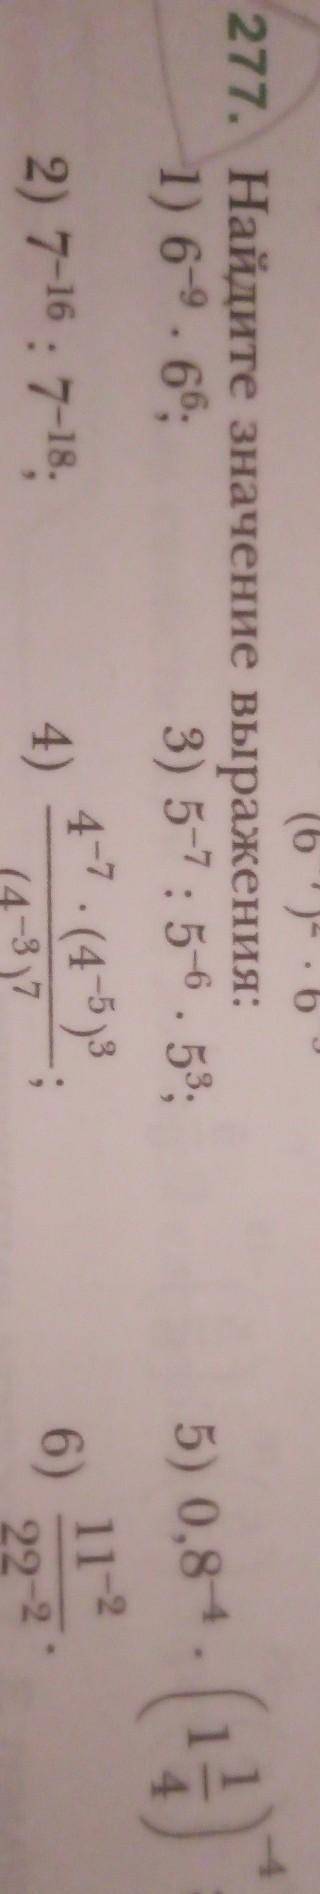 277. Найдите значение выражения:
1) 6⁻⁹ · 6⁶; 3) 5⁻⁷ : 5⁻⁶ · 5³; 5) 0,8⁻⁴ · (1 1/4)⁻⁴
2) 7⁻¹⁶ : 7⁻¹⁸; 4) (4⁻⁷ · (4⁻⁵)³)/((4⁻³)⁷); 6) 11⁻²/22⁻².